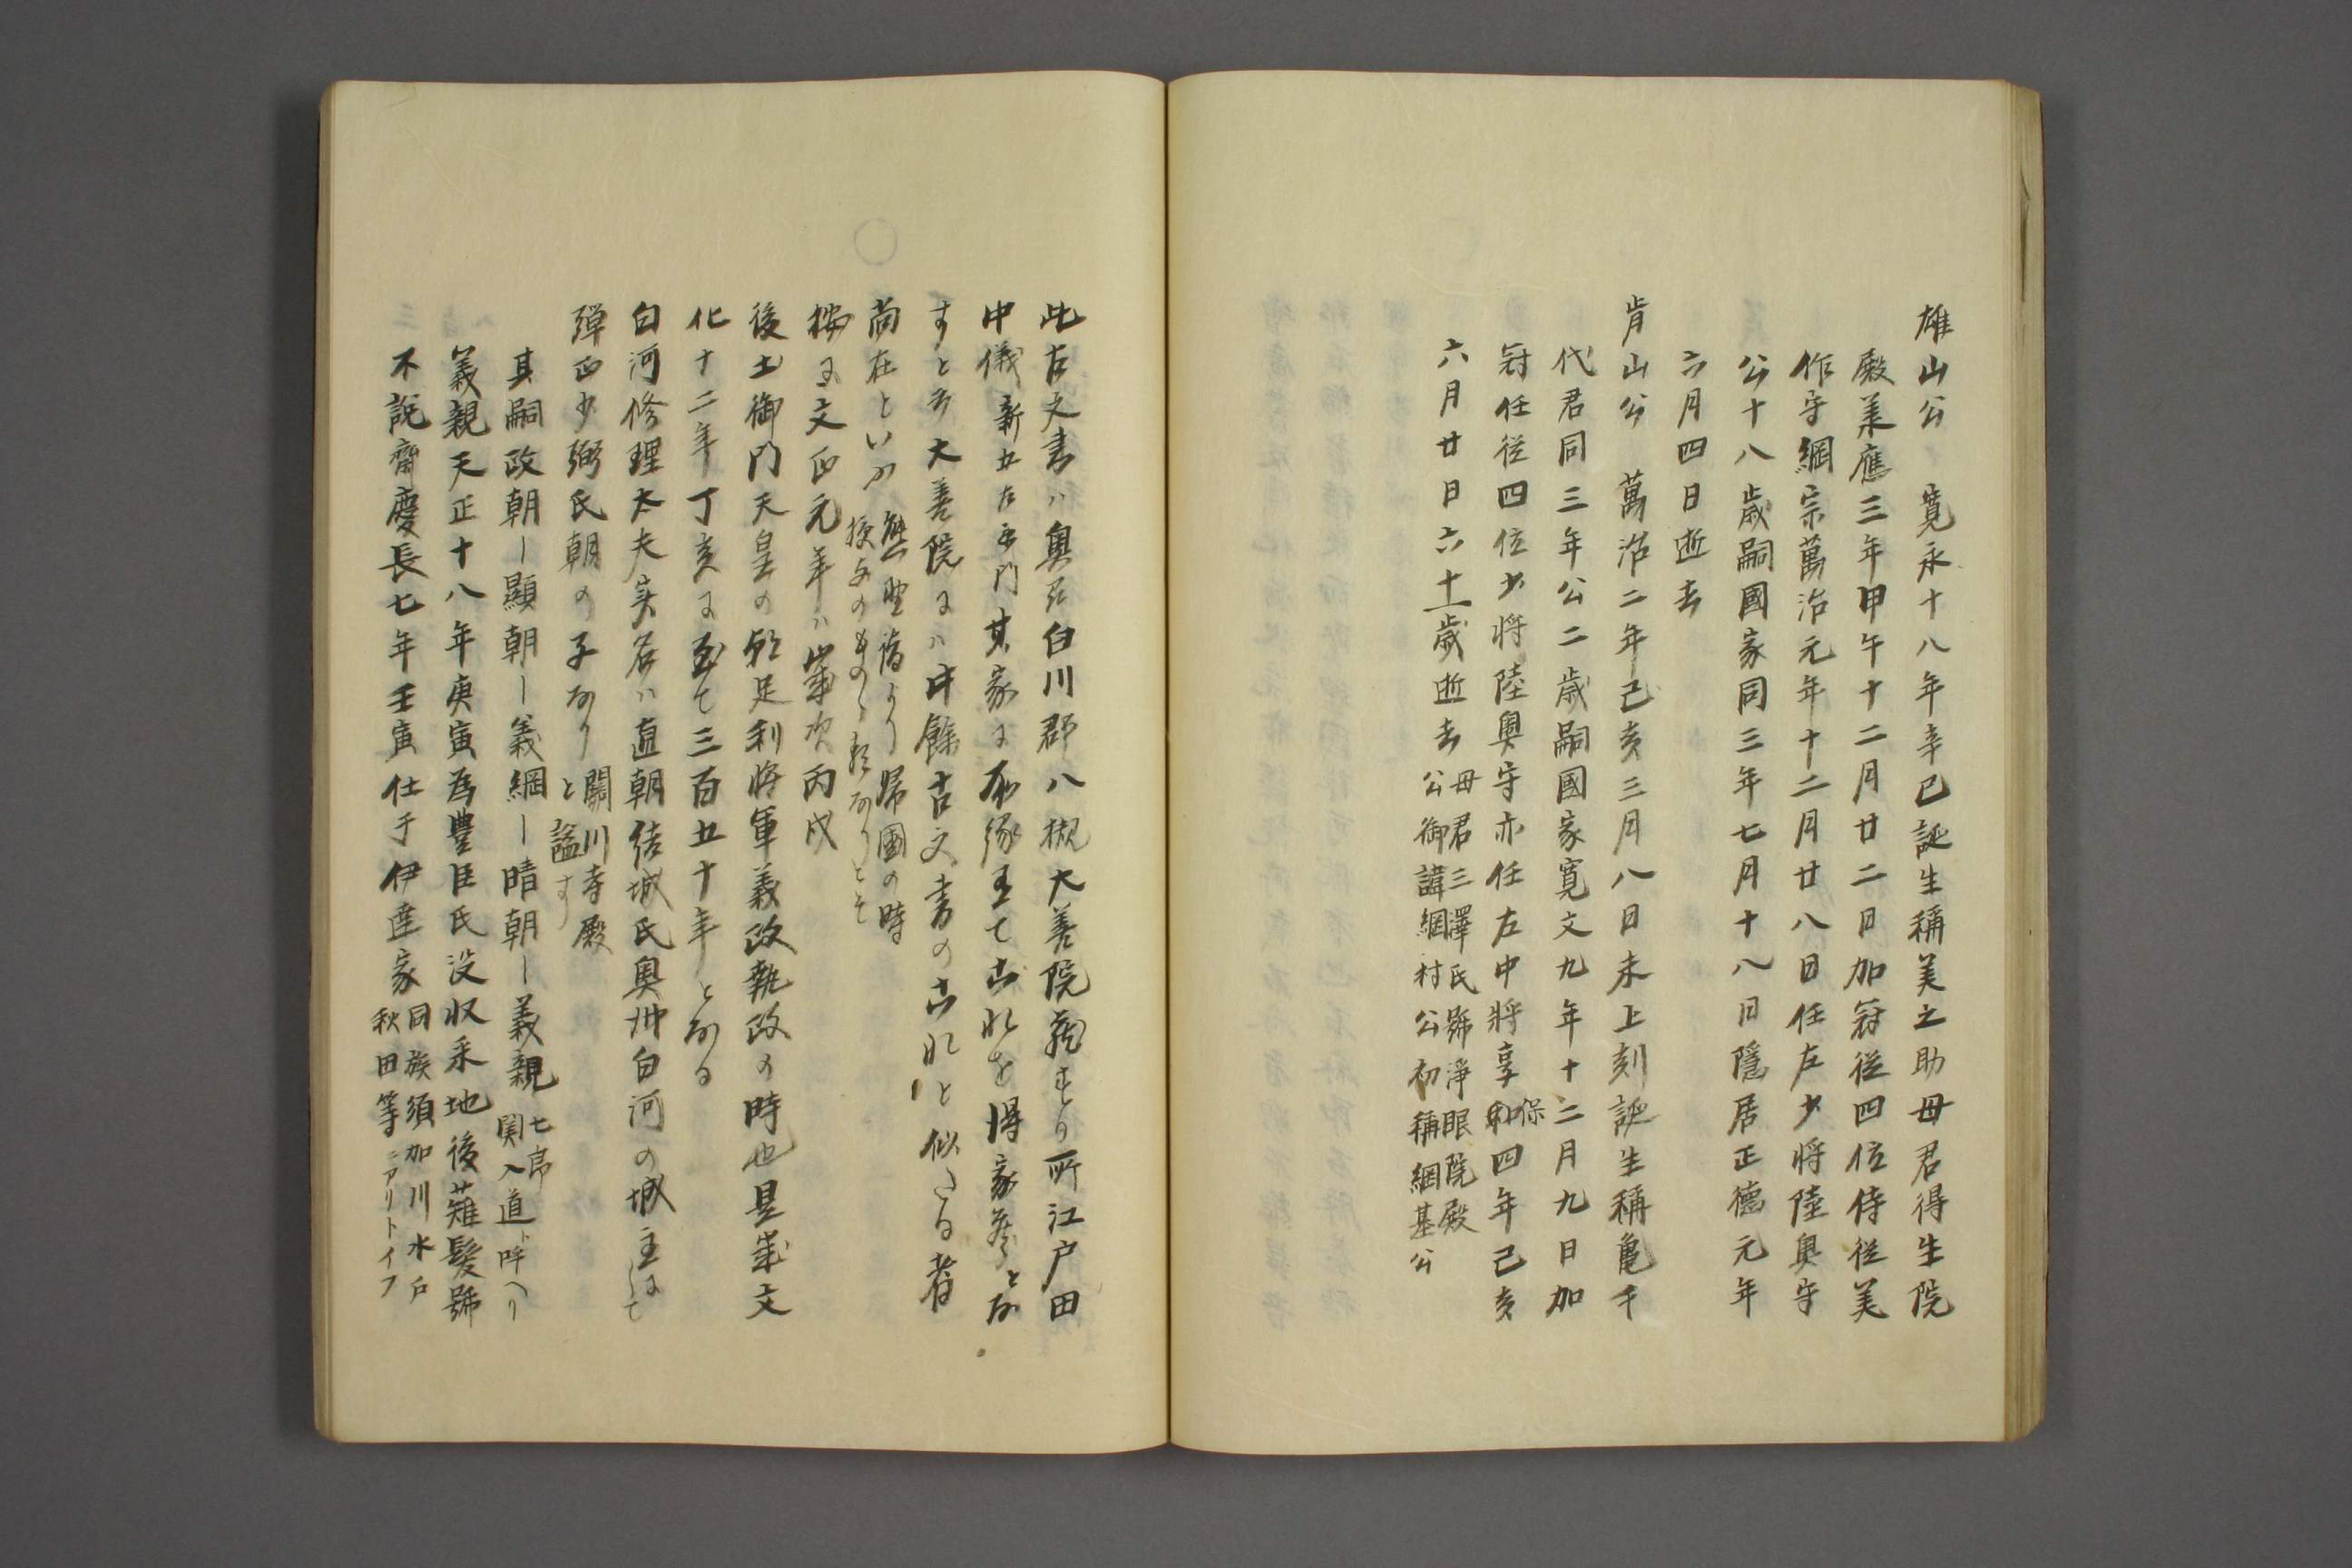 雄山公 寛永十八年辛巳誕生稱美之助母君得生院
殿美應三年甲午十二月廿二日加冠從四位侍從美
作守綱宗萬治元年十二月廿八日任左少将陸奥守
公十八歳嗣國家同三年七月十八日隠居正徳元年
六月四日逝去
肯山公 萬治二年己亥三月八日未上刻誕生稱亀千
代君同三年公二歳嗣國家寛文九年十二月九日加
冠任従四位少将陸奥守亦任左中将享和四年己亥
保
六月廿日六十一歳逝去
母君三澤氏號淨眼院殿
公御諱綱村公初稱綱基公
此古文書ハ奥州白川郡八槻大善院蔵する所江戸田
中儀新五右衛門其家に
すと云大善院にハ廿餘古文書の
尚在といふ
熊野
より歸國の時
按に文正元年ハ歳次丙戌
後土御門天皇の朝足利将軍義政執政の時也是歳文
化十二年丁亥に至て三百五十年となる
白河修理太夫実名ハ直朝結城氏奥州白河の城主にして
弾正少弼氏朝の子なり
關川寺殿
と謚す
其嗣政朝ー顯朝ー義綱ー晴朝ー義親
七郎
関入道ト呼ヘリ
義親天正十八年庚寅為豊臣氏没収采地後薙髪號
不説齋慶長七年壬寅仕于伊達家
同族須加川水戸
秋田等ニアリトイフ